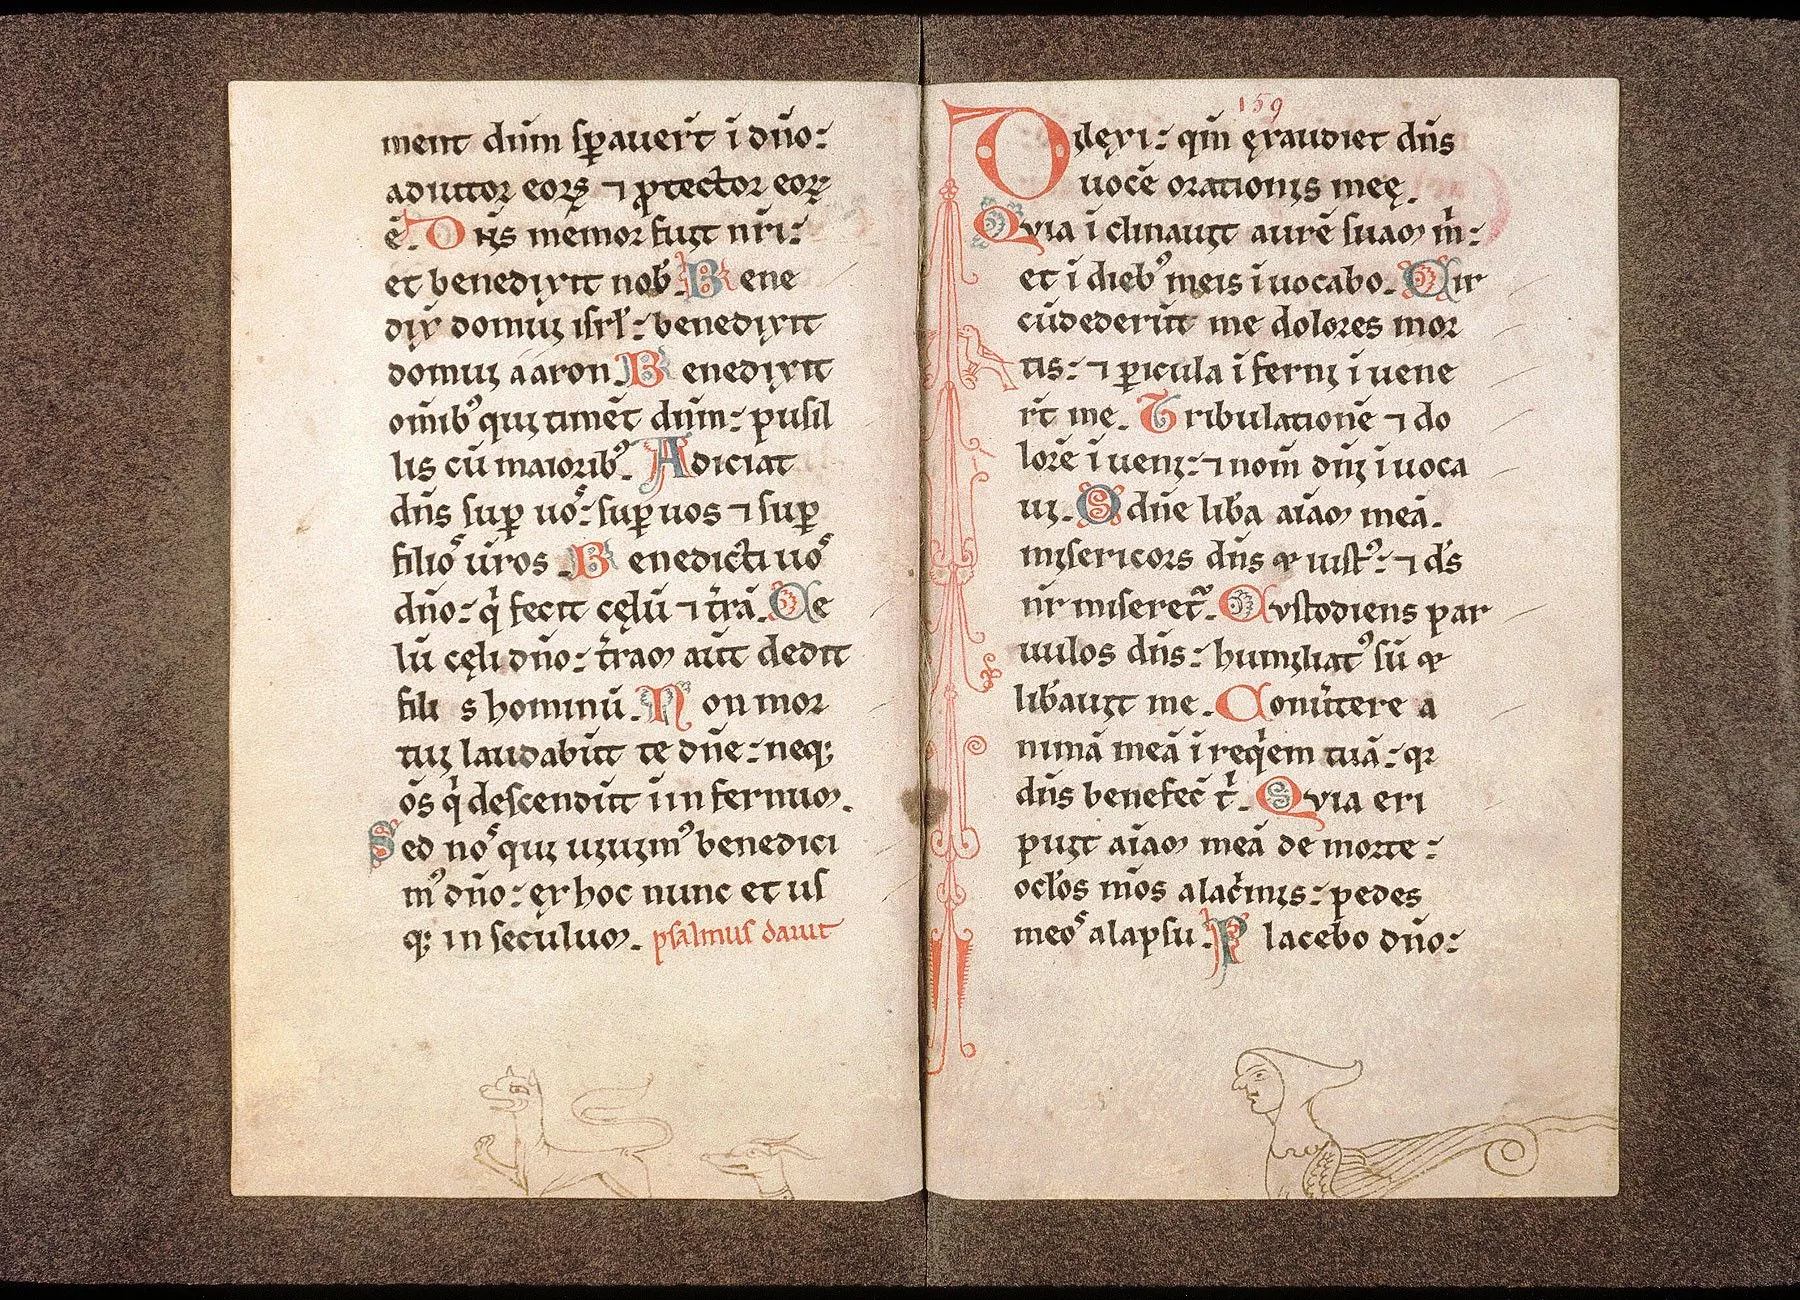 ment dn̄m sꝑauer̄t ī dn̄o:
adiutor eoꝝ ⁊ ꝓtector eoꝝ
ē. Dn̄s memor fuit nr̄i:
et benedixit nob̓. Bene
dix̄ domui isrl̓: benedixit
domui aaron. Benedixit
om̄ibꝰ qui timēt dn̄m: pusil
lis cū maioribꝰ. Adiciat
dn̄s suꝑ uoˢ: suꝑ uos ⁊ suꝑ
filioˢ ūros. Benedicti uoˢ
dn̄o: qͥ fecit cęlū ⁊ tr̄ā. Ce
lū cęli dn̄o: tr̄aꝫ aūt dedit
filiis hominū. Non mor
tui laudabūt te dn̄e: neqꝫ
ōs qͥ descendūt ī infernuꝫ.
Sed noˢ qui uiuimꝰ benedici
mꝰ dn̄o: ex hoc nunc et us
qꝫ in seculuꝫ. psalmus dauit
159
Dilexi: qm̄ exaudiet dn̄s
uocē orationis meę.
Quia īclinauit aurē suaꝫ m̄:
et ī diebꝰ meis īuocabo. Cir
cūdederūt me dolores mor
tis: ⁊ ꝑicula īferni īuene
rt̄ me. Tribulationē ⁊ do
lorē īueni: ⁊ nom̄ dn̄i īuoca
ui. O dn̄e lib̓a aīaꝫ meā.
misericors dn̄s ⁊ iustꝰ: ⁊ ds̄
nr̄ miseret᷑. Custodiens par
uulos dn̄s: humiliatꝰ sū ⁊
lib̓auit me. Conūtere a
nimā meā ī reqͥem tuā: qꝛ
dn̄s benefec̄ tͥ. Quia eri
puit aīaꝫ meā de morte:
ocl̓os m̄os alac̓mis: pedes
meoˢ alapsu. Placebo dn̄o: